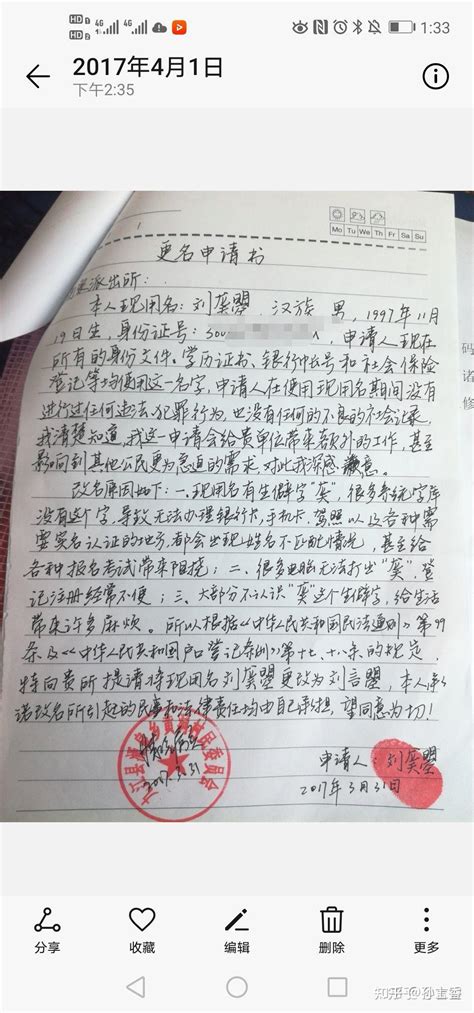 HD1 4G HD2 4G 1:33
2017年4月1日
下午2:35
Mo Tu We Th Fr Sa Su
更名申请书
派出所：
本人现用名：刘 曌，汉族 男，1997年11月
19日生，身份证号：500 X，申请人现在
所有的身份文件、学历证书、银行帐号和社会保险
登记等均使用这一名字，申请人在使用现用名期间没有
进行过任何违法、犯罪行为，也没有任何的不良的社会记录，
我清楚知道，我这一申请会给贵单位带来额外的工作，甚至
影响到其他公民更为急迫的需求，对此我深感歉意。
改名原因如下：一、现用名有生僻字“ ”，很多系统字库
没有这个字，导致无法办理银行卡，手机卡，驾照以及各种需
要实名认证的地方，都会出现姓名不匹配情况，甚至给
各种报名考试带来阻挠；二、很多电脑无法打出“ ”，登
记注册经常不便；三、大部分不认识“ ”这个生僻字，给生活
带来许多麻烦。所以根据《中华人民共和国民法通则》第99
条及《中华人民共和国户口登记条例》第十七、十八条的规定，
特向贵所提请将现用名刘 曌更改为刘言曌，本人承
诺改名所引起的民事和法律责任均由自己承担，望同意为切！
2017.3.31
村民委员会
申请人：刘 曌
2017年3月31日
码
诸
修
分享 收藏 编辑 删除 更多
知乎